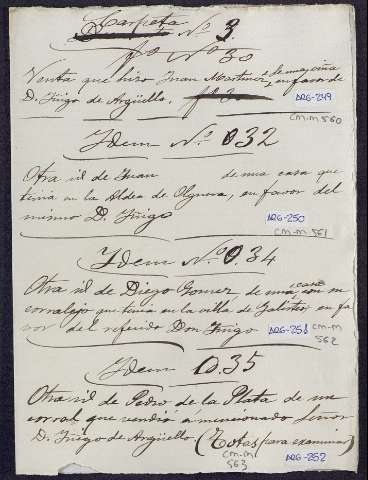 Carpeta Nº 3
fº Nº 30
Venta que hizo Juan Martinez, de una viña en favor de
D. Iñigo de Argüello. fº 30
ARG-249
CM-M 560
Ydem Nº 032
Otra id de Juan de una casa que
tenia en la Aldea de , en favor del
mismo D. Iñigo
ARG-250
CM-M 561
Ydem Nº 0.34
Otra id de Diego Gomez, de una casa con su
corralejo que tenia en la villa de Galisteo, en fa
vor del referido Don Iñigo
ARG-251
CM-M 562
Ydem 0.35
Otra id de Pedro de la Plata de un
corral que vendió á mencionado Señor
D. Iñigo de Argüello (Notas para examinar)
CM-M 563
ARG-252